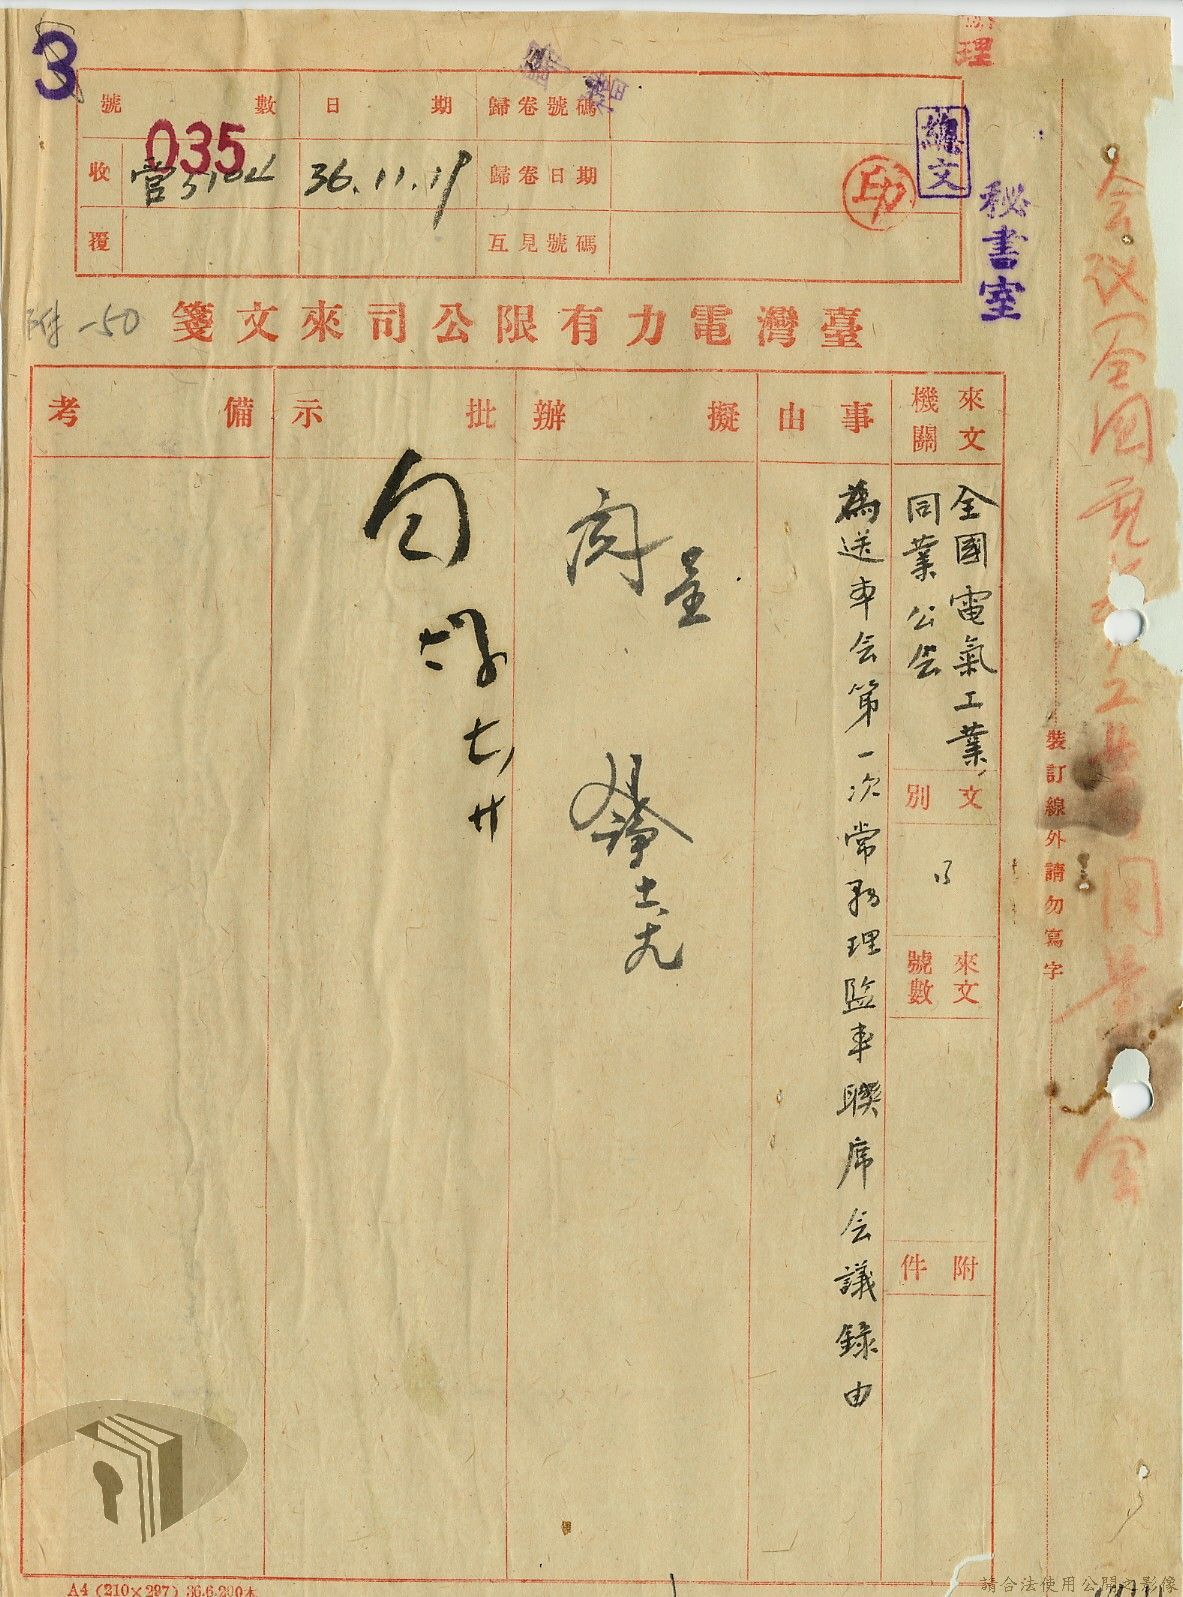 3
理
號數
日期
歸卷號碼
035
收
36.11.19
歸卷日期
覆
互見號碼
總文
印
秘書室
附-50
臺灣電力有限公司來文箋
來文機關
事由
擬辦
批示
備考
全國電氣工業
同業公会
文別
來文號數
附件
為送本会第一次常務理監事聯席会議錄由
呈
閱
十一、十九
裝訂線外請勿寫字
A4 (210×297) 36.6.200本
請合法使用公開之影像